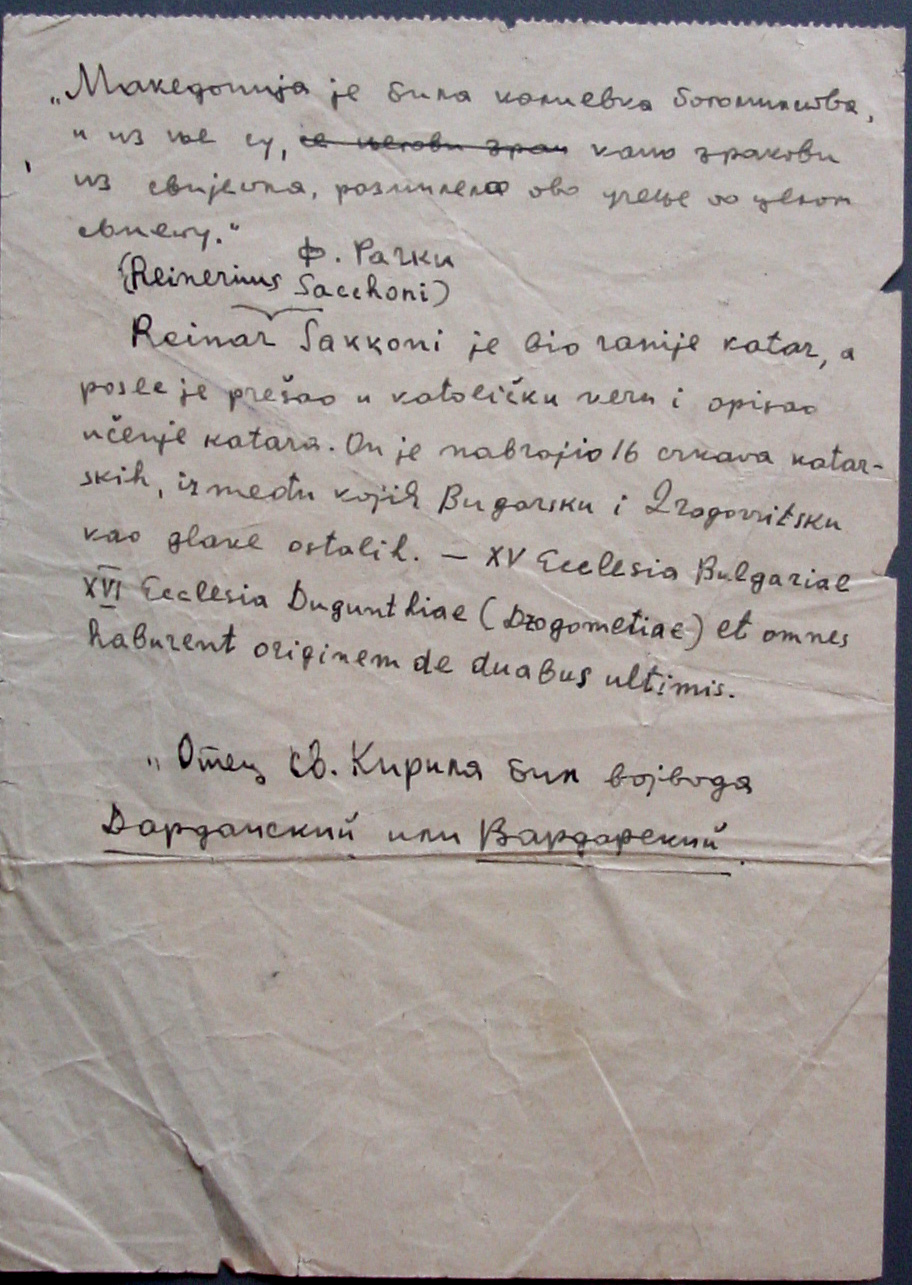 „Македонија је била колиевка богомилства,
и из ње су, је његови зрац као зракови
из свијетла, розишлело ово учење по целом
свиету."
Ф. Рачки
(Reinerius Sacchoni)
Reinar Sakkoni je bio ranije katar, a
posle je prešao u katoličku veru i opisao
učenje katara. On je nabrojio 16 crkava katar-
skih, između kojih Bugarsku i Dragovitsku
kao glave ostalih. — XV Ecclesia Bulgariae
XVI Ecclesia Dugunthiae (Drogometiae) et omnes
haburent originem de duabus ultimis.
„Отец св. Кирила бил војвода
Дарданский или Вардарский.